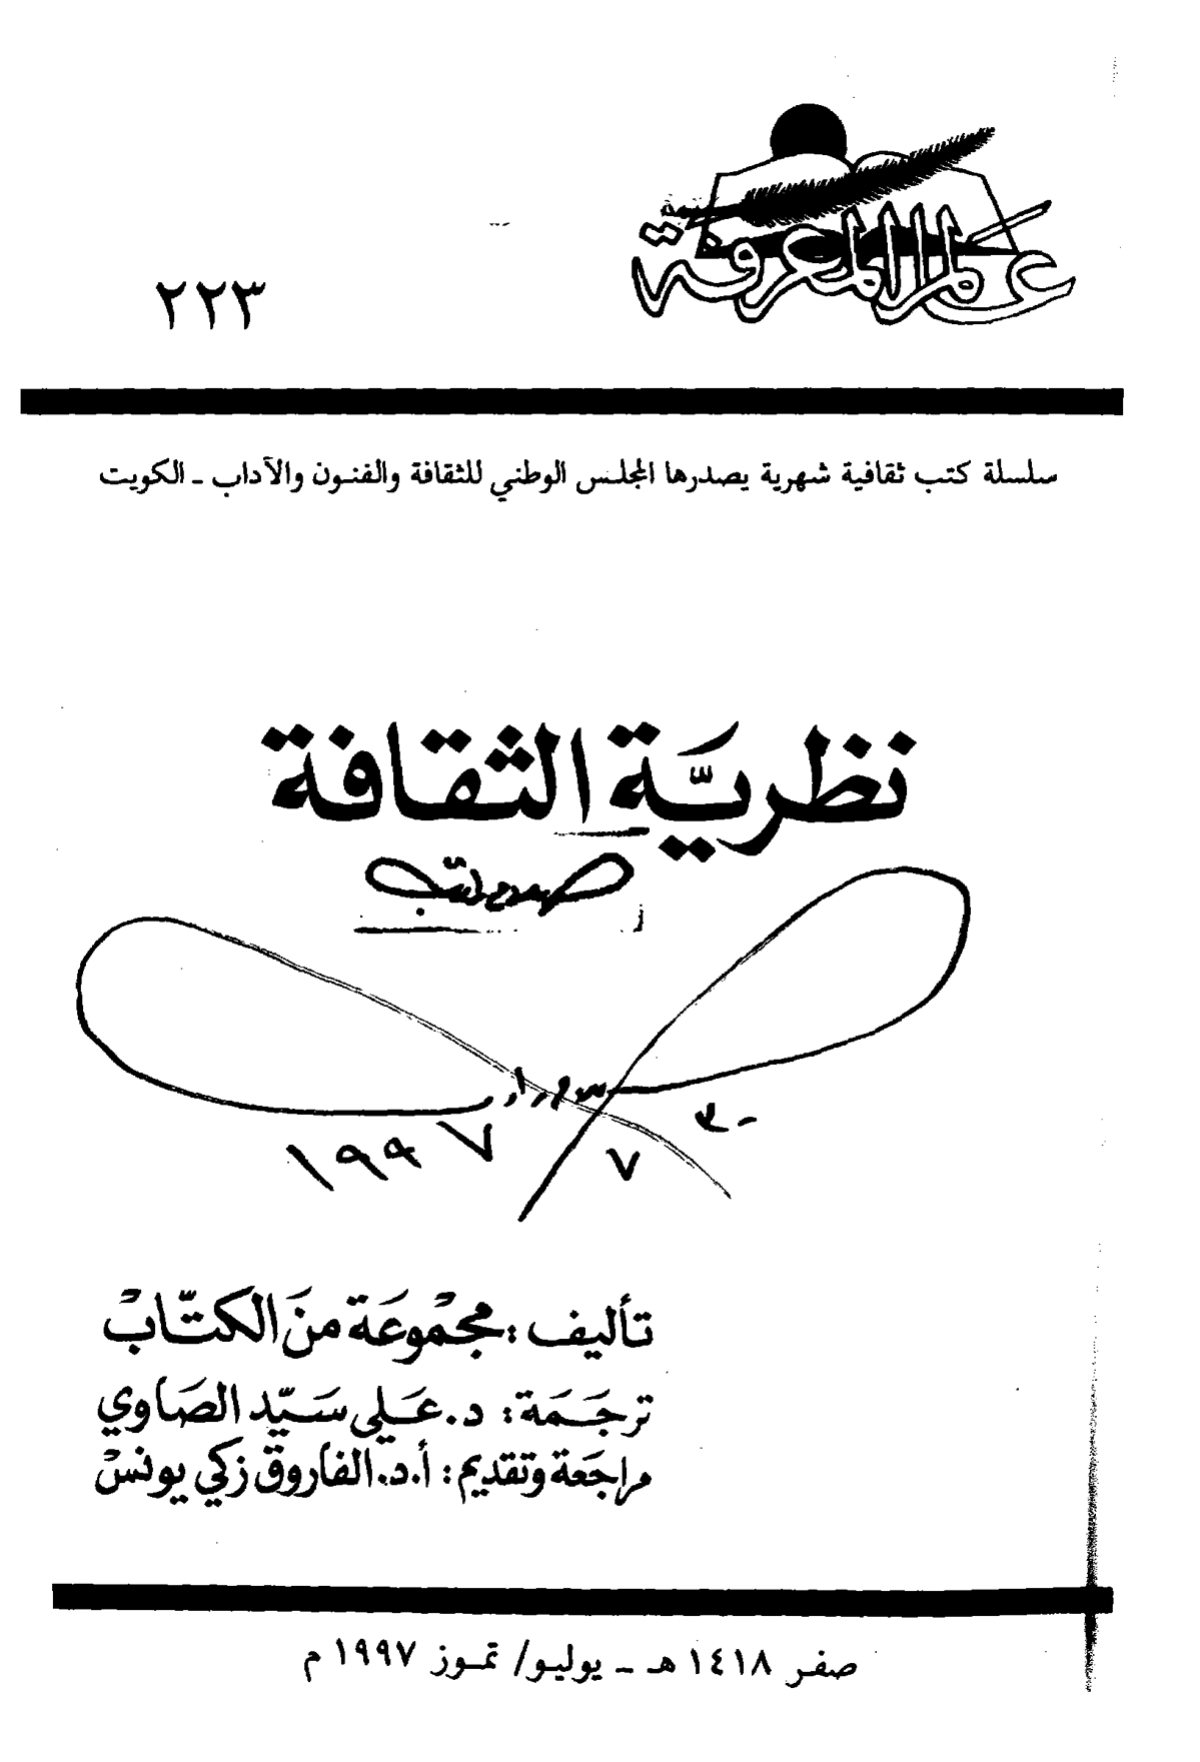 عالم المعرفة
٢٢٣
سلسلة كتب ثقافية شهرية يصدرها المجلس الوطني للثقافة والفنون والآداب ـ الكويت
نظريَّة الثقافة
٧ ١٩٩٧
تأليف: مجْموعَة منَ الكتّابْ
ترجَمَة: د. عَلي سَيّد الصَاوي
مراجَعَة وتقديم: أ.د. الفاروق زكي يونسْ
صفر ١٤١٨ هـ ـ يوليو/ تموز ١٩٩٧ م